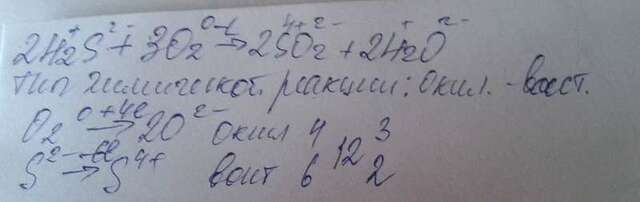 2H₂⁺S²⁻ + 3O₂⁰ →ᵗ 2S⁴⁺O₂²⁻ + 2H₂⁺O²⁻
Тип химической реакции: окисл. -восст.
O₂⁰ +4e → 2O²⁻ окисл 4 12 3
S²⁻ -6e → S⁴⁺ восст 6 2